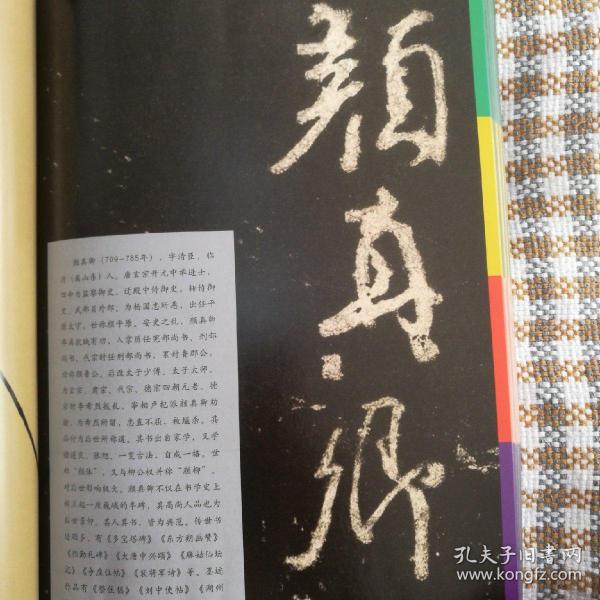 顏真卿
颜真卿（709-785年），字清臣，临
沂（属山东）人。唐玄宗开元中举进士，
四命为监察御史，迁殿中侍御史，转侍御
史、武部员外郎。为杨国忠所恶，出任平
原太守，世称颜平原。安史之乱，颜真卿
率兵抗贼有功，入京历任宪部尚书、刑部
尚书，代宗时任刑部尚书，累封鲁郡公，
世称颜鲁公。后改太子少傅、太子太师，
为玄宗、肃宗、代宗、德宗四朝元老。德
宗时李希烈叛乱，宰相卢杞派颜真卿劝
谕，为希烈所留，忠直不屈，被缢杀。其
品行为后世所称道。其书出自家学，又学
褚遂良、张旭，一变古法，自成一格，世
称“颜体”，又与柳公权并称“颜柳”，
对后世影响极大。颜真卿不仅在书学史上
树立起一座巍峨的丰碑，其高尚人品也为
后世景仰，其人其书，皆为典范。传世书
迹颇多，有《多宝塔碑》《东方朔画赞》
《颜勤礼碑》《大唐中兴颂》《麻姑仙坛
记》《争座位帖》《裴将军诗》等。墨迹
作品有《祭侄稿》《刘中使帖》《湖州
孔夫子旧书网
www.kongfz.com